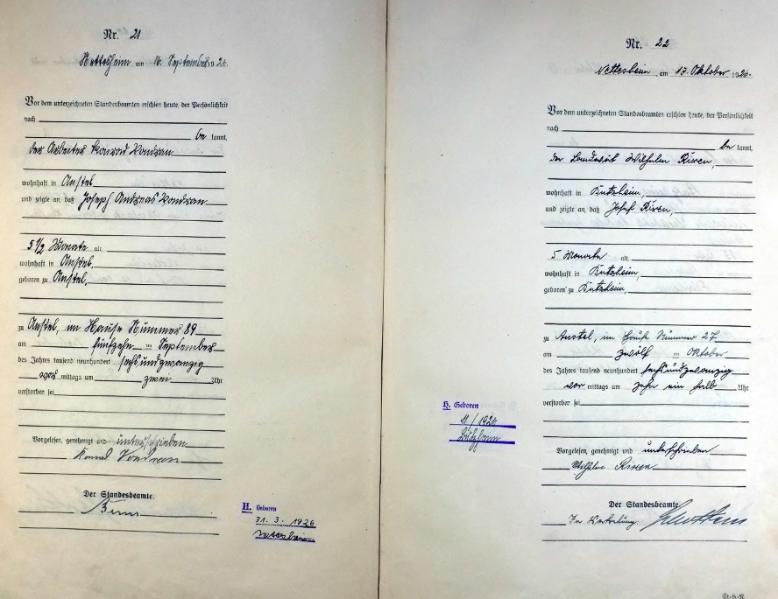 Nr. 21
am 16. September 1926.
Vor dem unterzeichneten Standesbeamten erschien heute, der Persönlichkeit
nach
be kannt,
der Arbeiter Konrad Vondran
wohnhaft in Anstel
und zeigte an, daß Joseph Andreas Vondran
5 1/2 Monate alt
wohnhaft in Anstel,
geboren zu Anstel,
zu Anstel, im Hause Nummer 89
am fünfzehn ten September
des Jahres tausend neunhundert sechsundzwanzig
vor mittags um zwei Uhr
verstorben sei.
Vorgelesen, genehmigt und unterschrieben
Konrad Vondran
Der Standesbeamte.
II. Geboren
31. 3. 1926
Nr. 22
Nettesheim, am 13. Oktober 1926.
Vor dem unterzeichneten Standesbeamten erschien heute, der Persönlichkeit
nach
be kannt,
der Landwirt Wilhelm
wohnhaft in
und zeigte an, daß Josef
5 Monate alt
wohnhaft in
geboren zu
zu Anstel, im Hause Nummer 27
am zwölf ten Oktober
des Jahres tausend neunhundert sechsundzwanzig
vor mittags um zehn ein halb Uhr
verstorben sei.
H. Geboren
/ 1926
Vorgelesen, genehmigt und unterschrieben
Wilhelm
Der Standesbeamte
In Vertretung